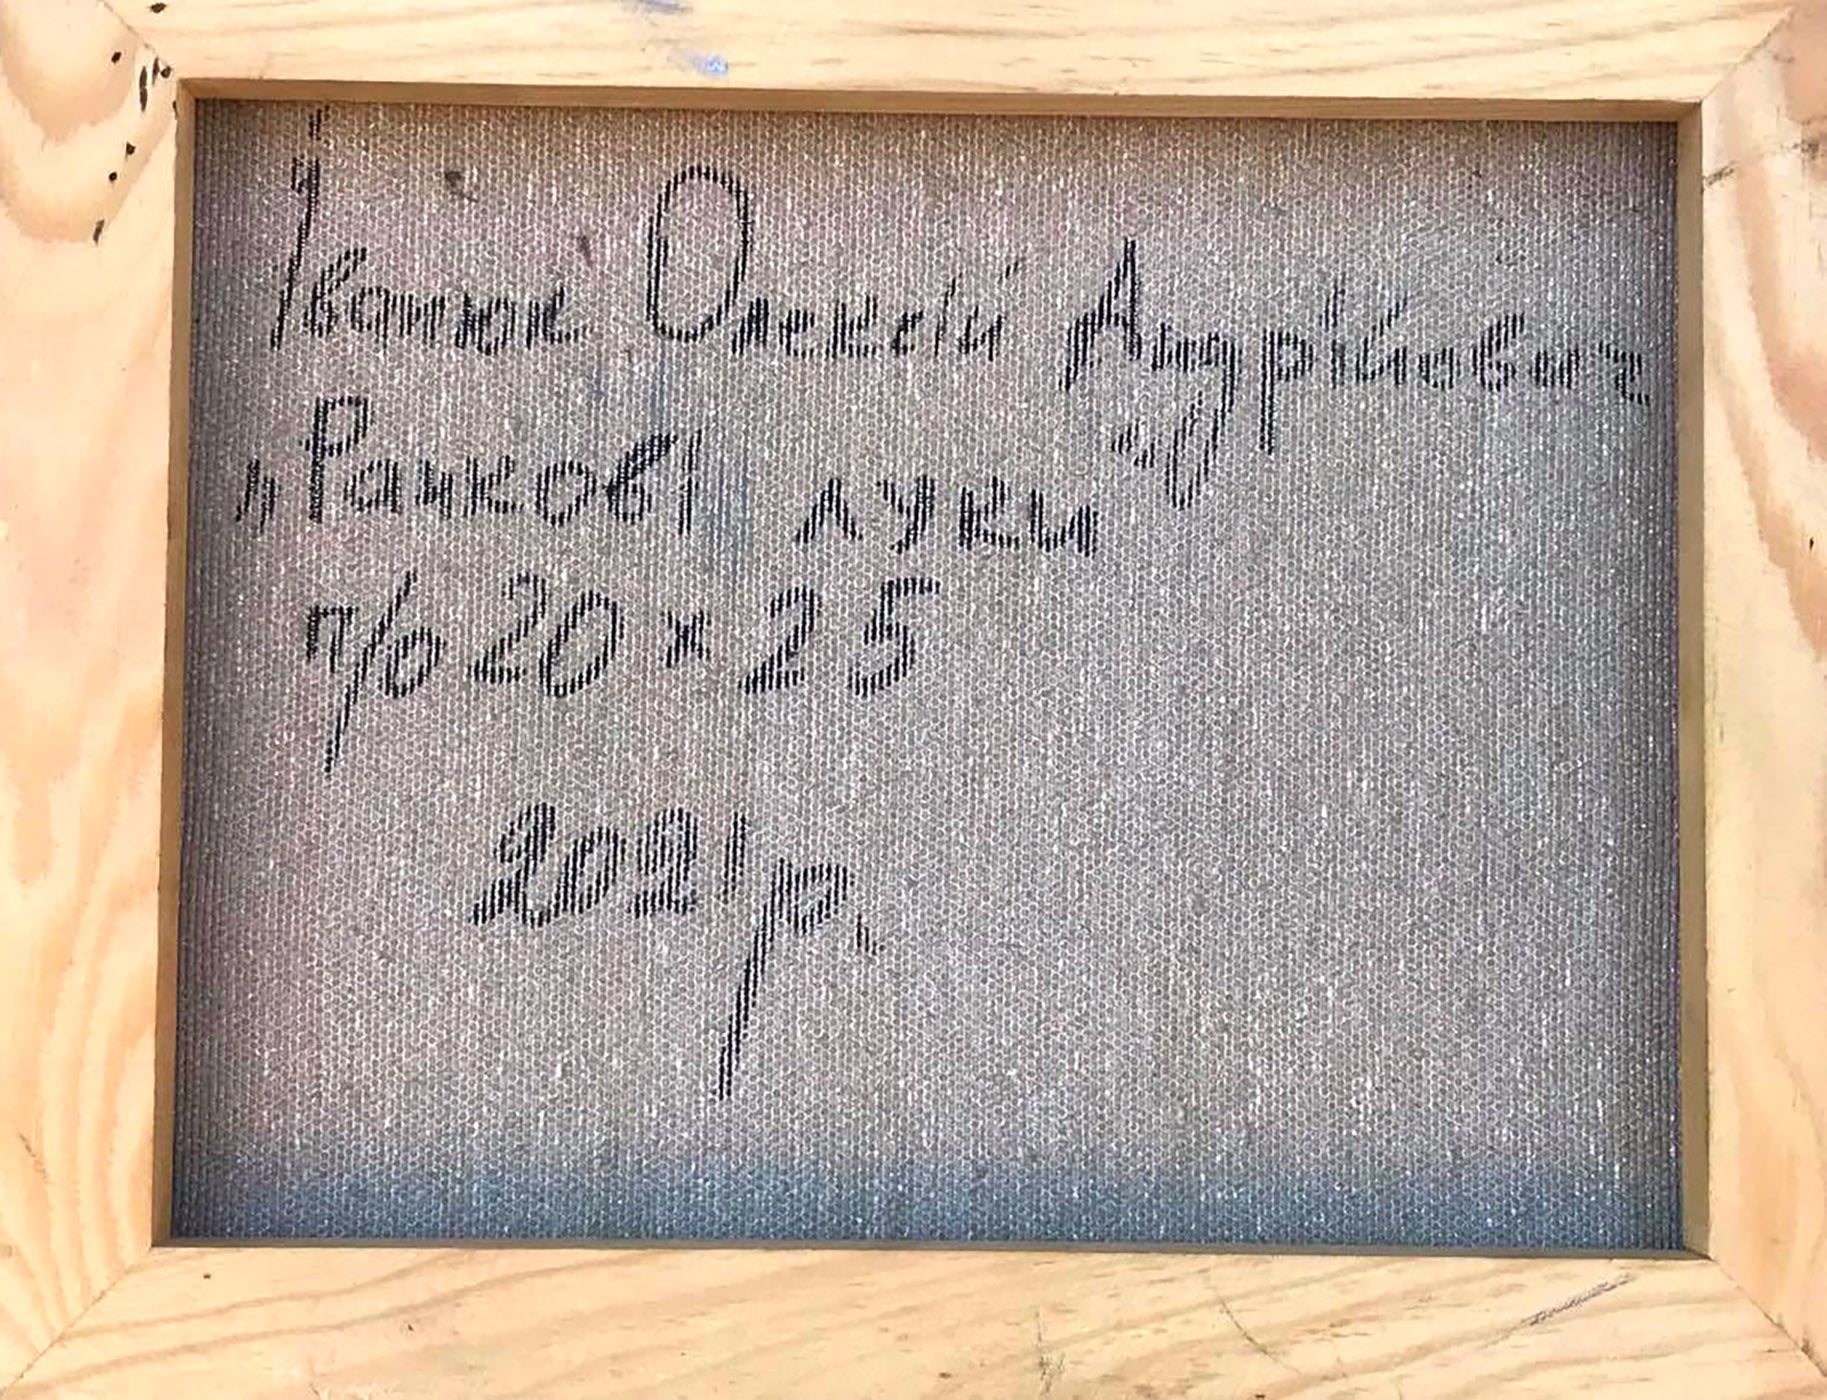 Іванюк Олексій Андрійович
„Ранкові луки"
п/о 20 x 25
2021 р.